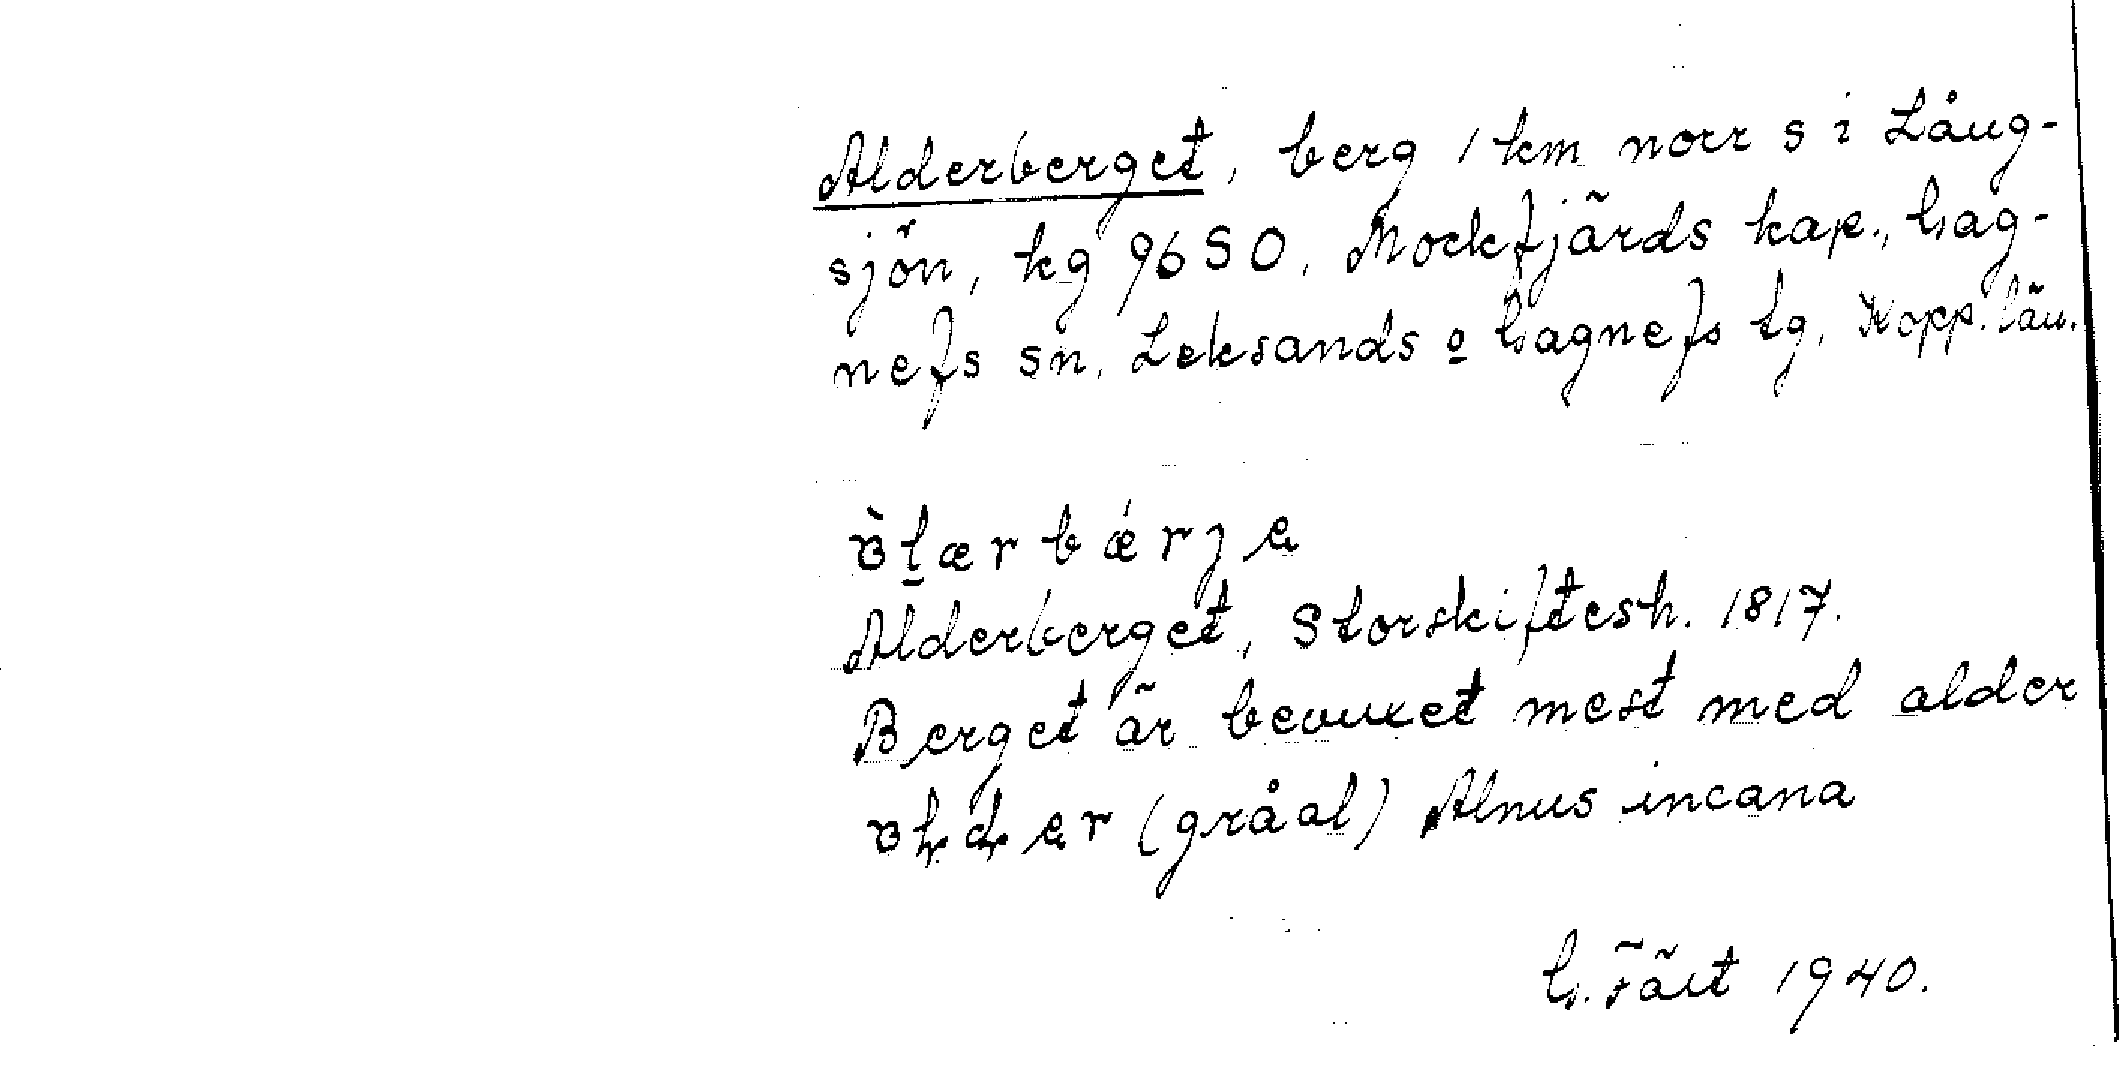 Alderberget, berg 1 km norr s i Lång-
sjön, kg 96 SO, Mockfjärds kap., Gag-
nefs sn, Leksands o Gagnefs tg, Kopp. län.
Alderberget, Storskiftesh. 1817.
Berget är bevuxet mest med alder
(gråal) Alnus incana
G. 1940.